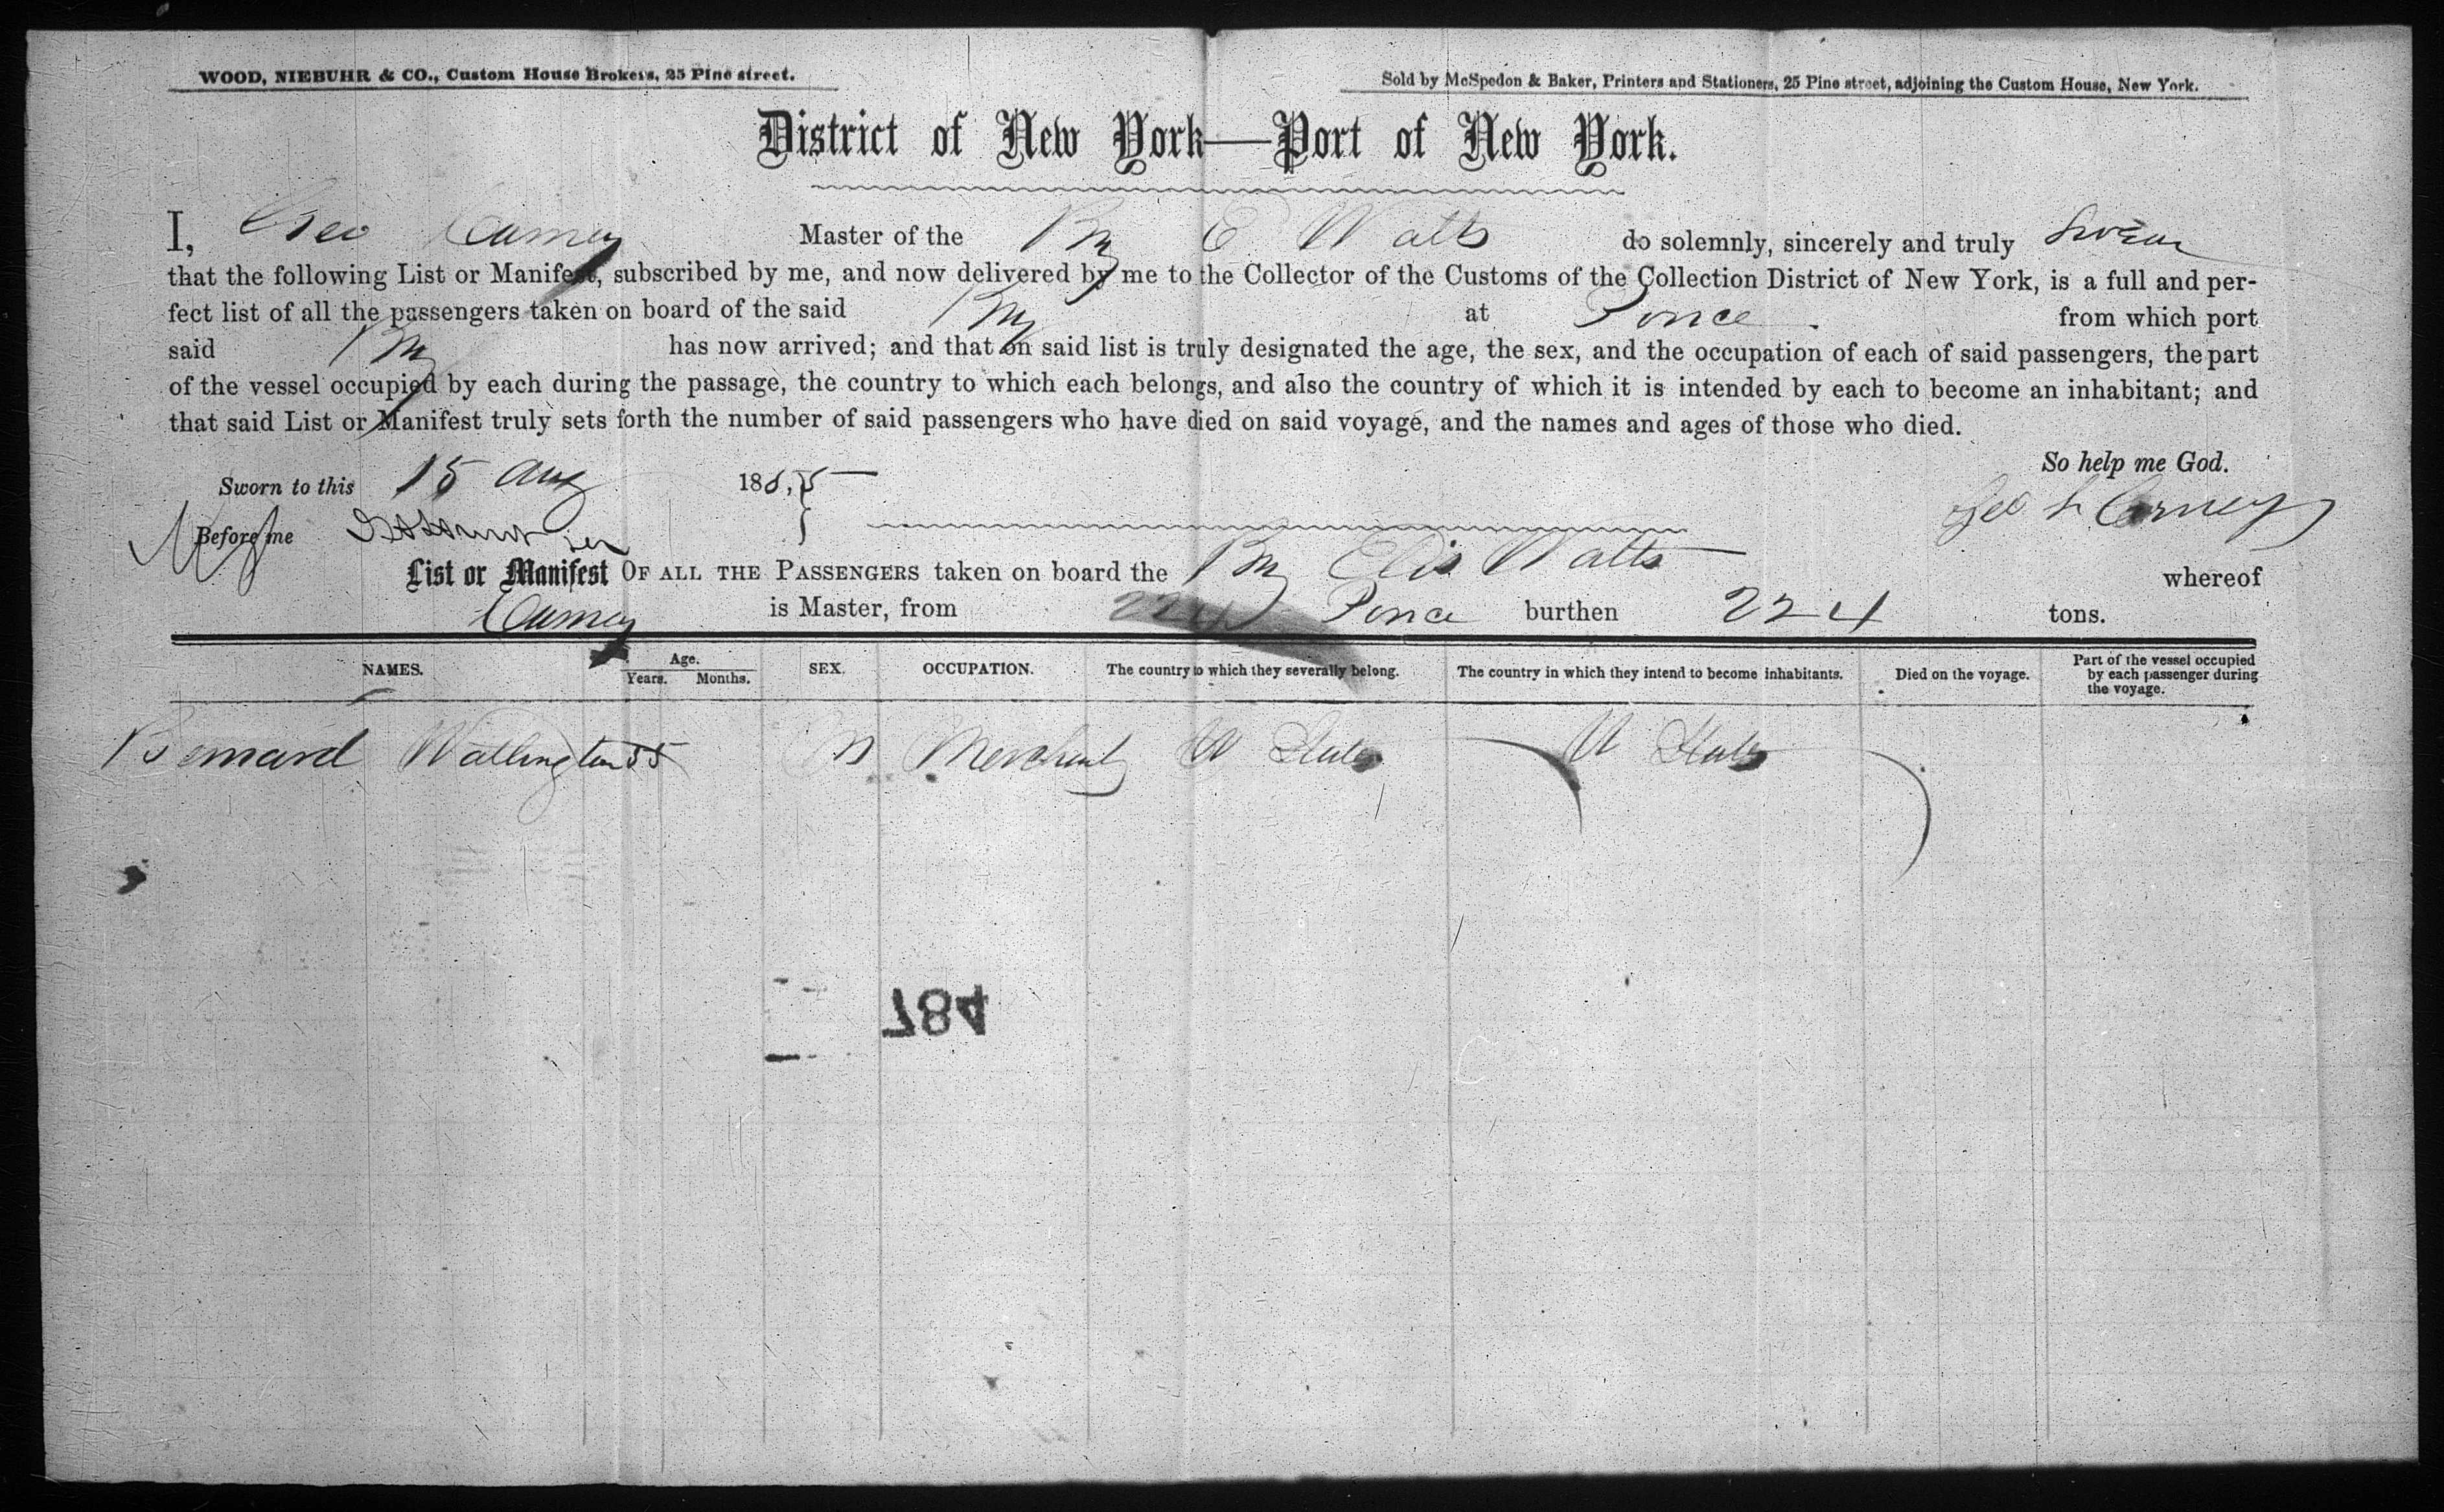 WOOD, NIEBUHR & CO., Custom House Brokers, 25 Pine street.
Sold by McSpedon & Baker, Printers and Stationers, 25 Pine street, adjoining the Custom House, New York.
District of New York—Port of New York.
I, Geo Carney Master of the Brig E Watts do solemnly, sincerely and truly Swear
that the following List or Manifest, subscribed by me, and now delivered by me to the Collector of the Customs of the Collection District of New York, is a full and per-
fect list of all the passengers taken on board of the said Brig at Ponce from which port
said Brig has now arrived; and that on said list is truly designated the age, the sex, and the occupation of each of said passengers, the part
of the vessel occupied by each during the passage, the country to which each belongs, and also the country of which it is intended by each to become an inhabitant; and
that said List or Manifest truly sets forth the number of said passengers who have died on said voyage, and the names and ages of those who died.
So help me God.
Sworn to this 15 Aug 1855
Geo L Carney
Before me
List or Manifest OF ALL THE PASSENGERS taken on board the Brig Elis Watts whereof
Carney is Master, from Ponce burthen 224 tons.
NAMES. Age. Years. Months. SEX. OCCUPATION. The country to which they severally belong. The country in which they intend to become inhabitants. Died on the voyage. Part of the vessel occupied by each passenger during the voyage.
Bernard Wallington 55 M Merchant U States U States
784